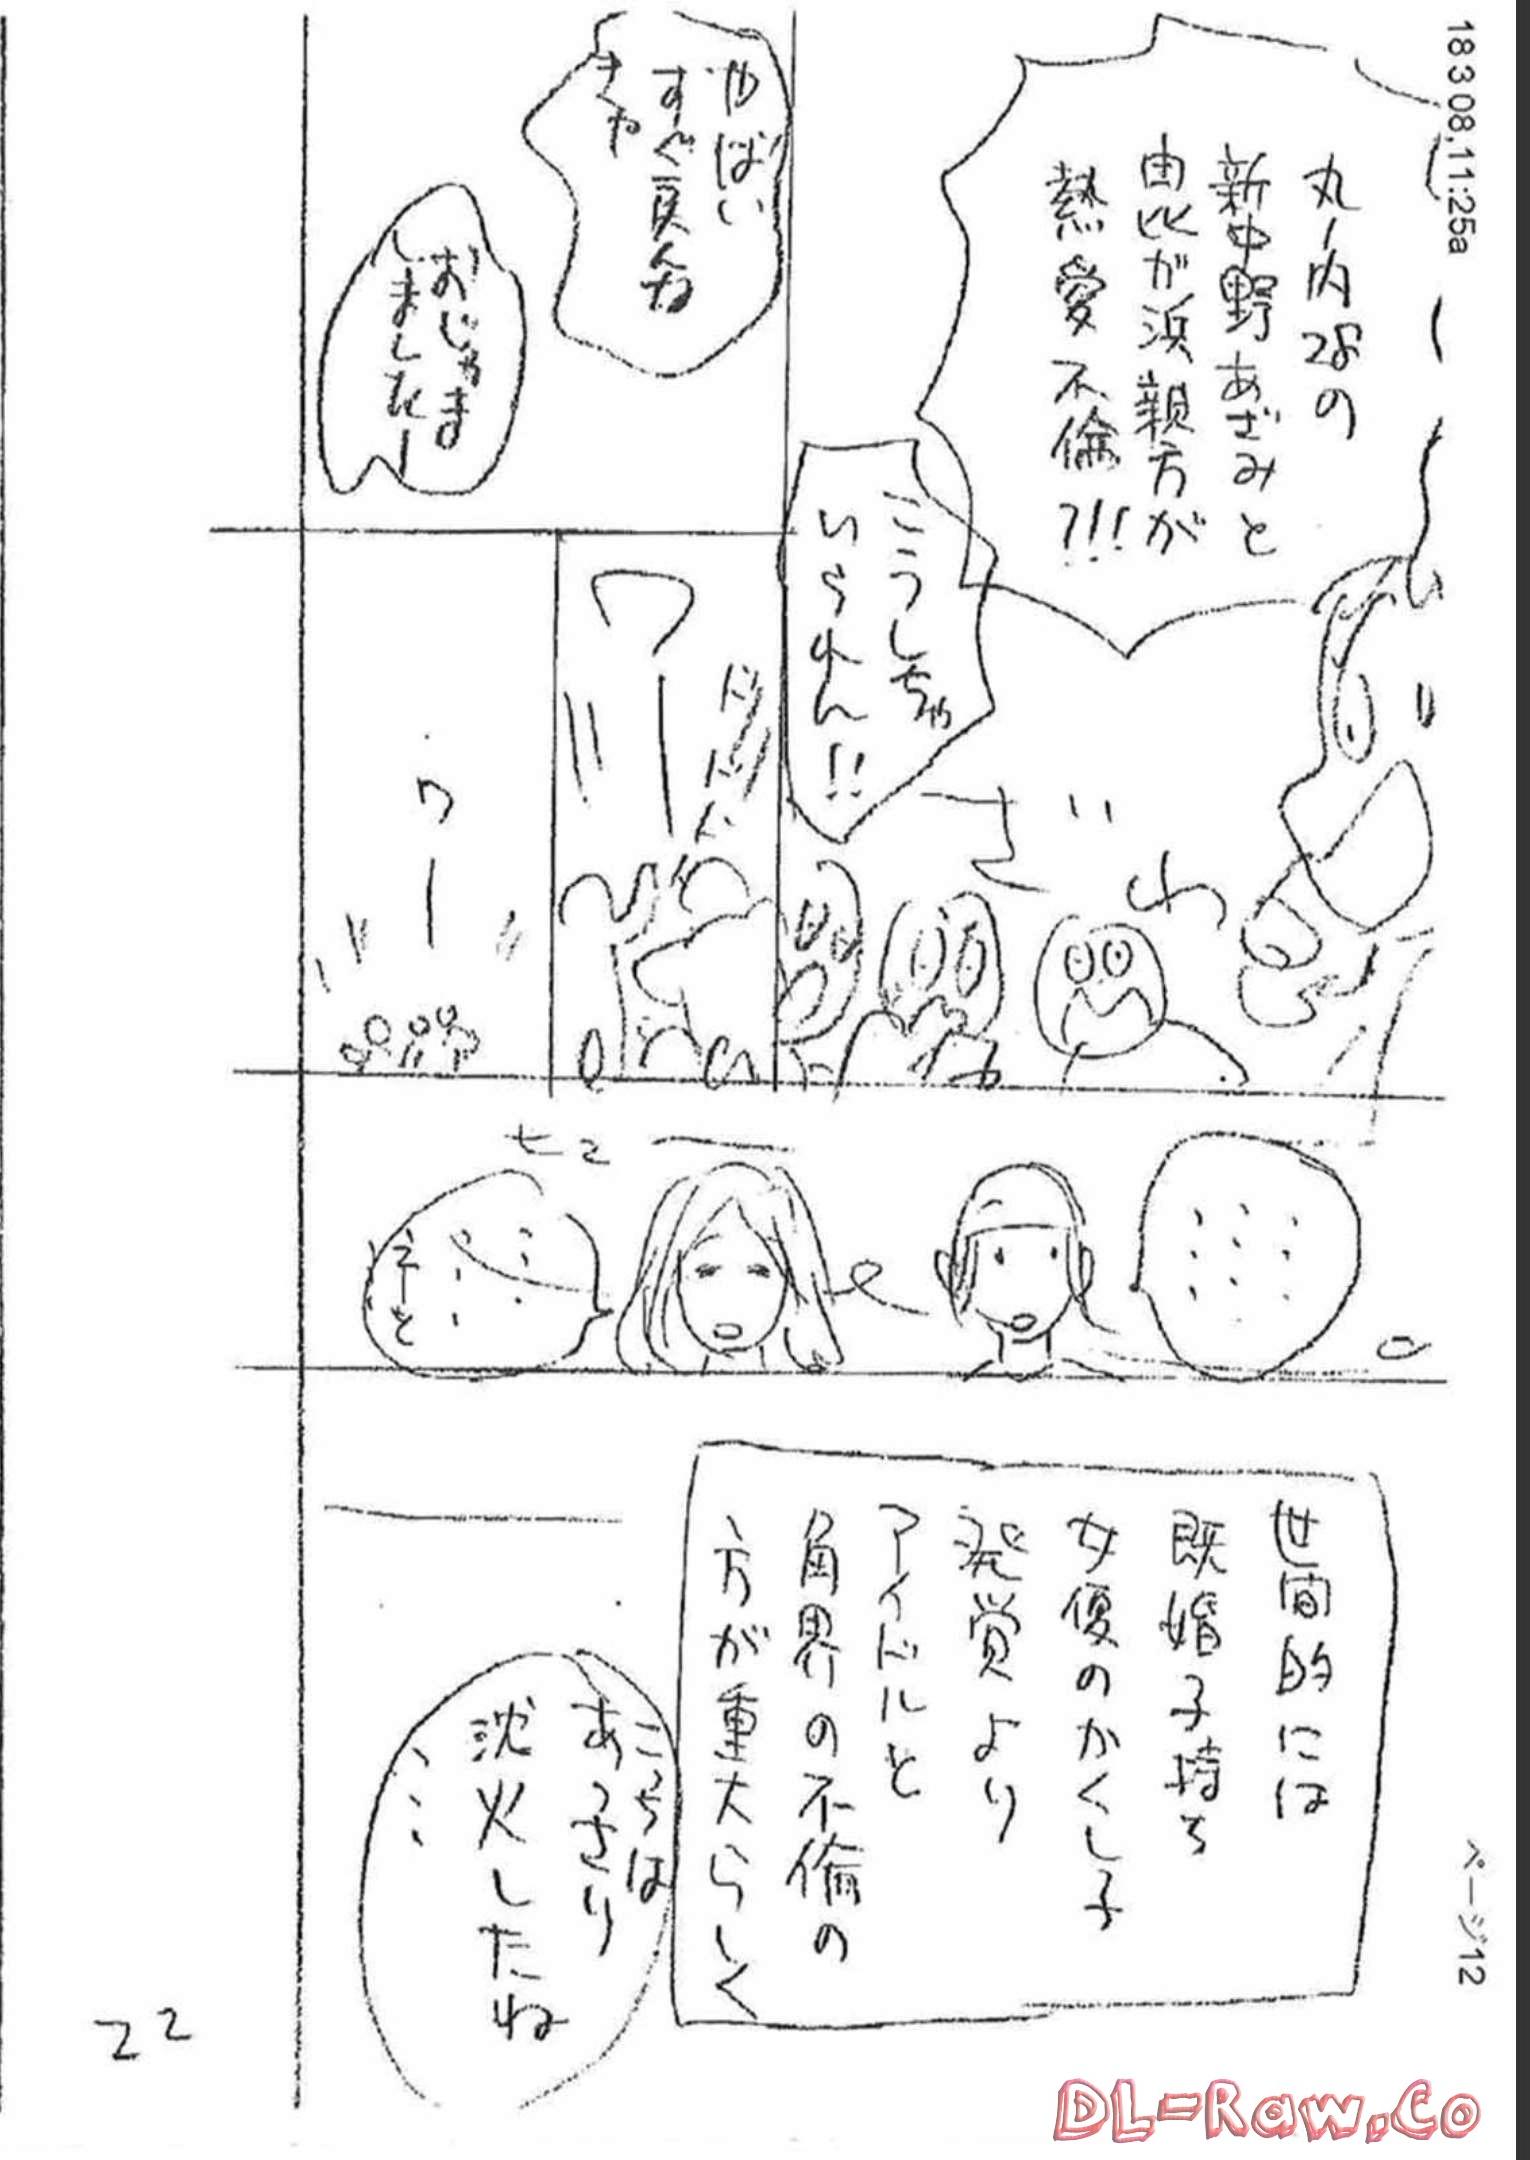 18 3 08,11:25a
丸ノ内28の
新中野あざみと
由比が浜親方が
熱愛不倫?!!
こうしちゃ
いられん!!
ざわ
やばい
すぐ戻んな
きゃ
おじゃま
しましたー
ドドド
ワー
ワー
世間的には
既婚子持ち
女優のかくし子
発覚より
アイドルと
角界の不倫の
方が重大らしく
こっちは
あっさり
沈火したね
……
ページ12
22
DL-Raw.Co